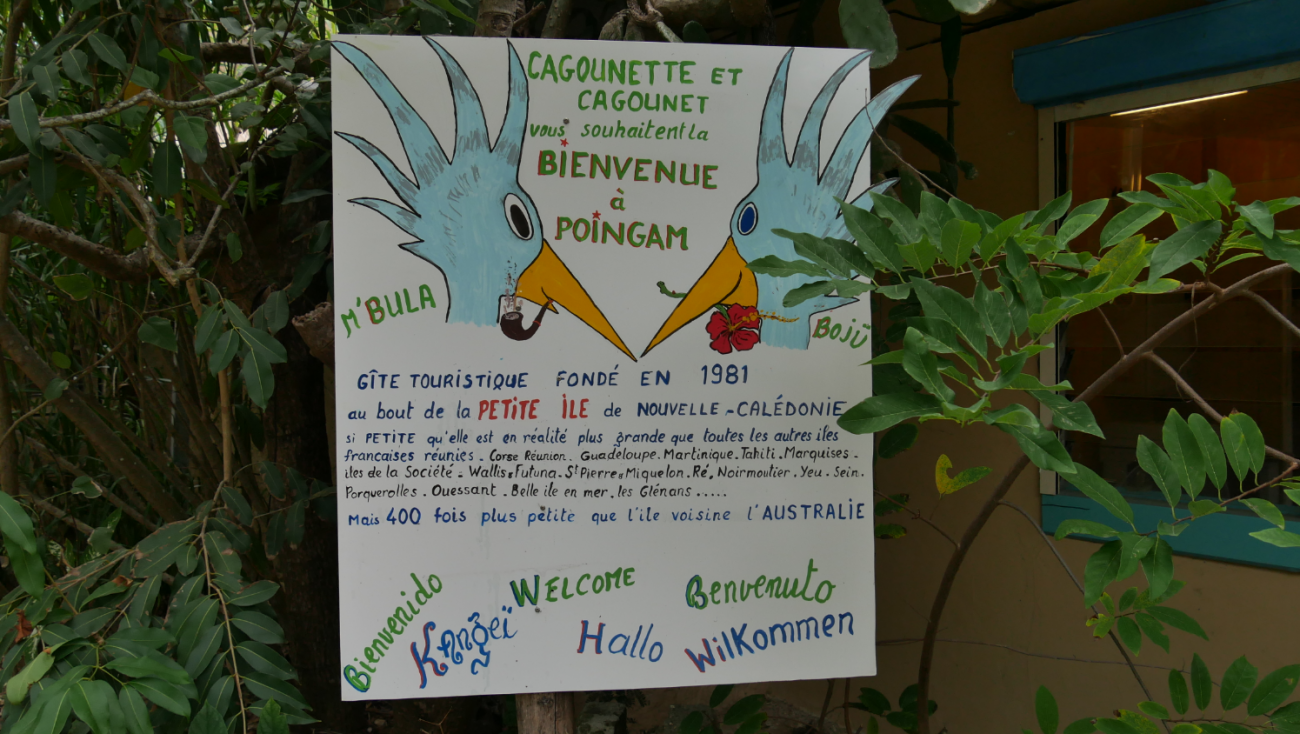 CAGOUNETTE ET
CAGOUNET
vous souhaitent la
BIENVENUE
à
POINGAM
M'BULA
BOJÚ
GÎTE TOURISTIQUE FONDÉ EN 1981
au bout de la PETITE ILE de NOUVELLE-CALÉDONIE
si PETITE qu'elle est en réalité plus grande que toutes les autres iles
françaises réunies. Corse Réunion. Guadeloupe. Martinique. Tahiti. Marquises.
iles de la Société. Wallis et Futuna. St Pierre et Miquelon. Ré. Noirmoutier. Yeu. Sein.
Porquerolles. Ouessant. Belle ile en mer. les Glénans .....
Mais 400 fois plus petite que l'ile voisine l'AUSTRALIE
Bienvenido
WELCOME
Benvenuto
Hallo
Wilkommen